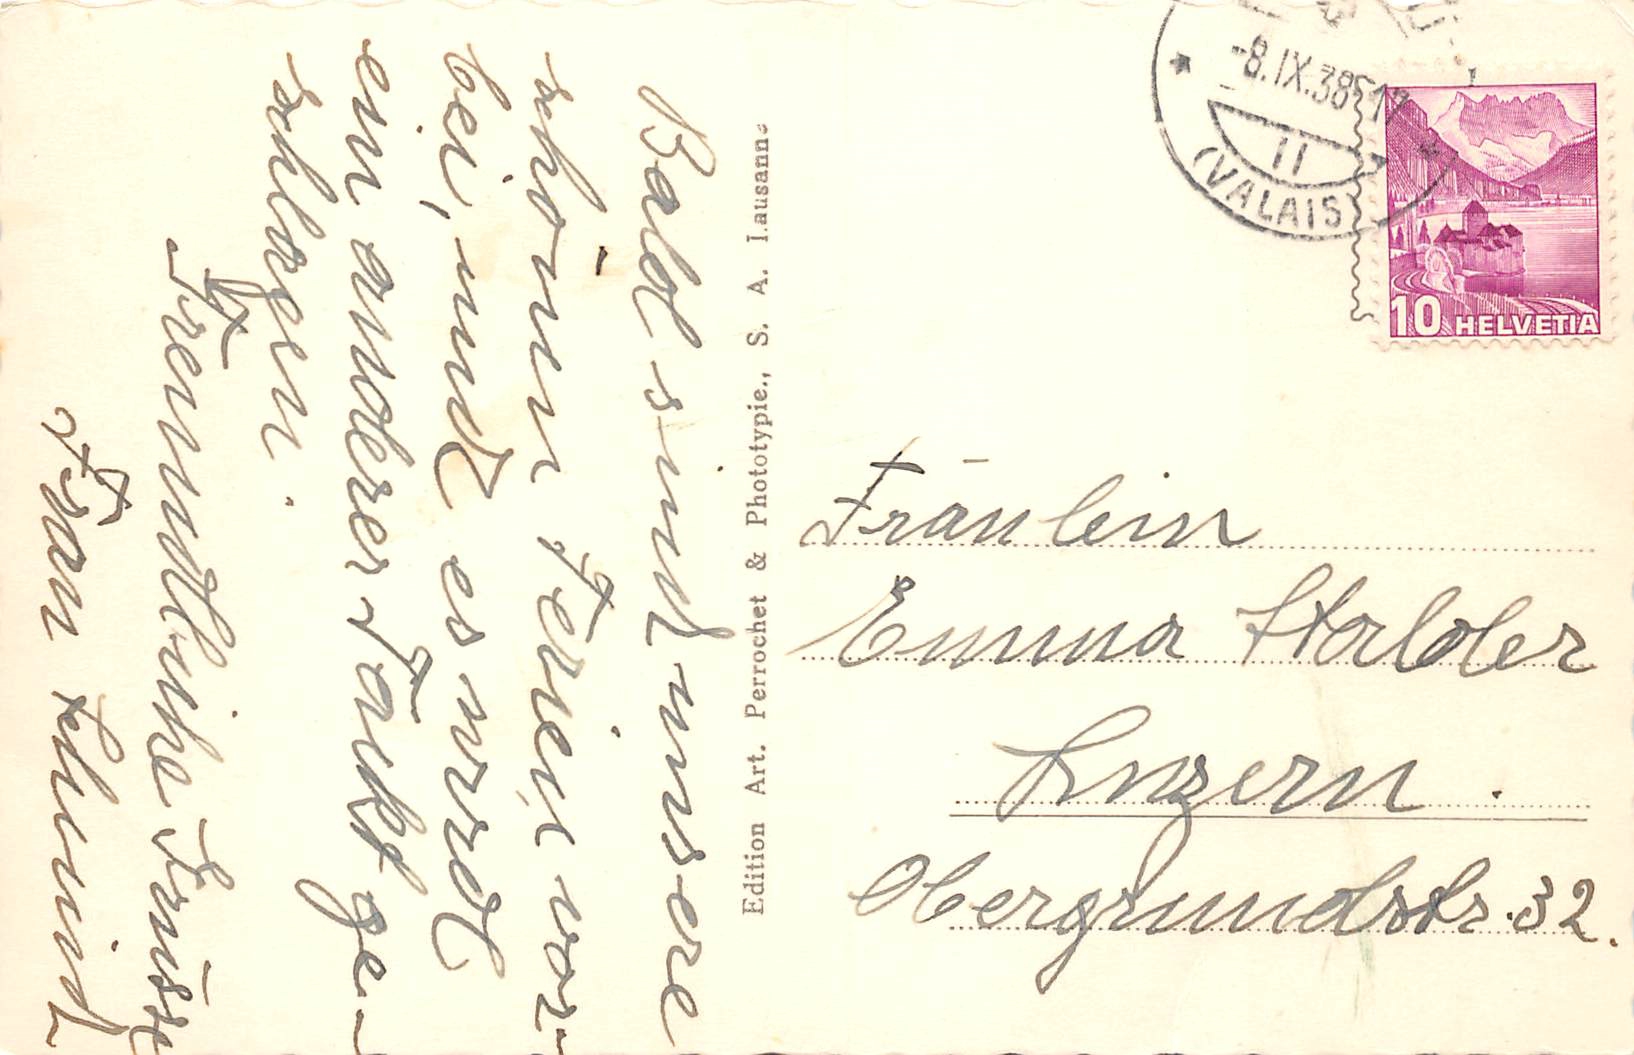 Bald sind unsere
schönen Ferien vor-
bei, und es wird
ein anderer Takt ge-
schlagen.
Freundliche Grüsse
Frau Schmid
Edition Art. Perrochet & Phototypie., S. A. Lausanne
-8.IX.38
11
(VALAIS)
10 HELVETIA
Fräulein
Emma Stalder
Luzern.
Obergrundstr. 32.